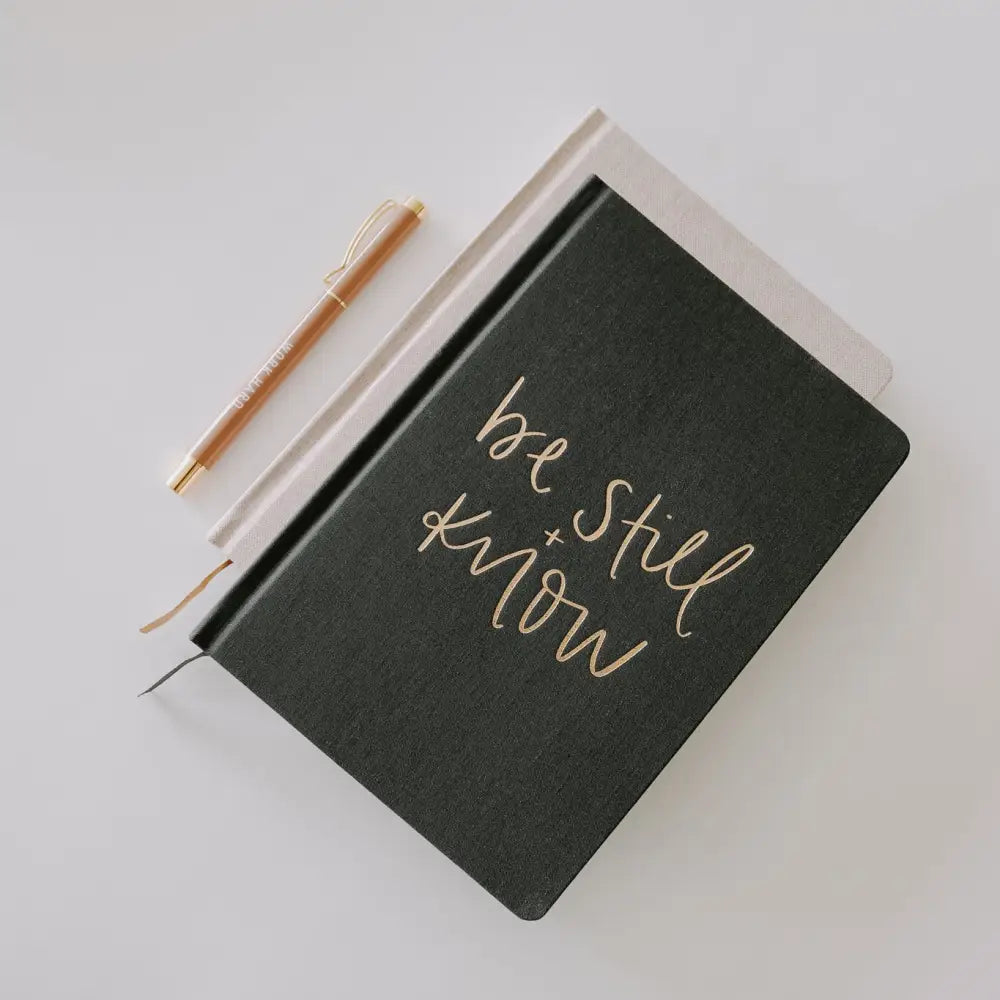 be Still
+
Know
WORK HARD